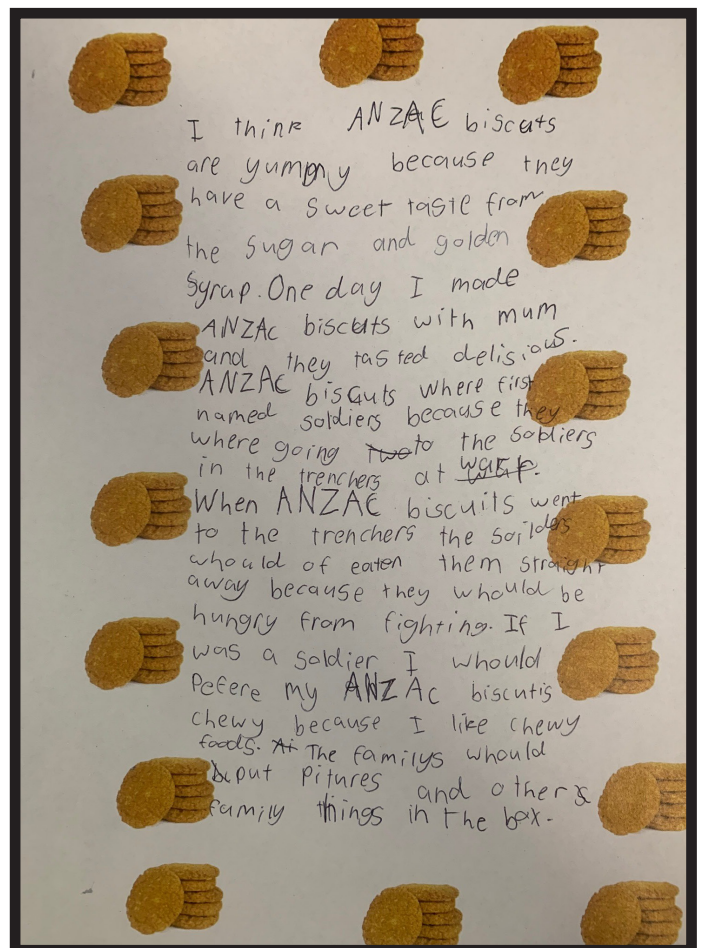 I think ANZAC biscuts
are yummy because they
have a sweet taste from
the sugar and golden
Syrup. One day I made
ANZAc biscuts with mum
and they tasted delisious.
ANZAC biscuts where first
named soldiers because they
where going to the soldiers
in the trenchers at war.
When ANZAC biscuits went
to the trenchers the soilders
whould of eaten them straight
away because they whould be
hungry from fighting. If I
was a soldier I whould
Pefere my ANZAc biscutis
chewy because I like chewy
foods. The familys whould
put pitures and others
family things in the box.